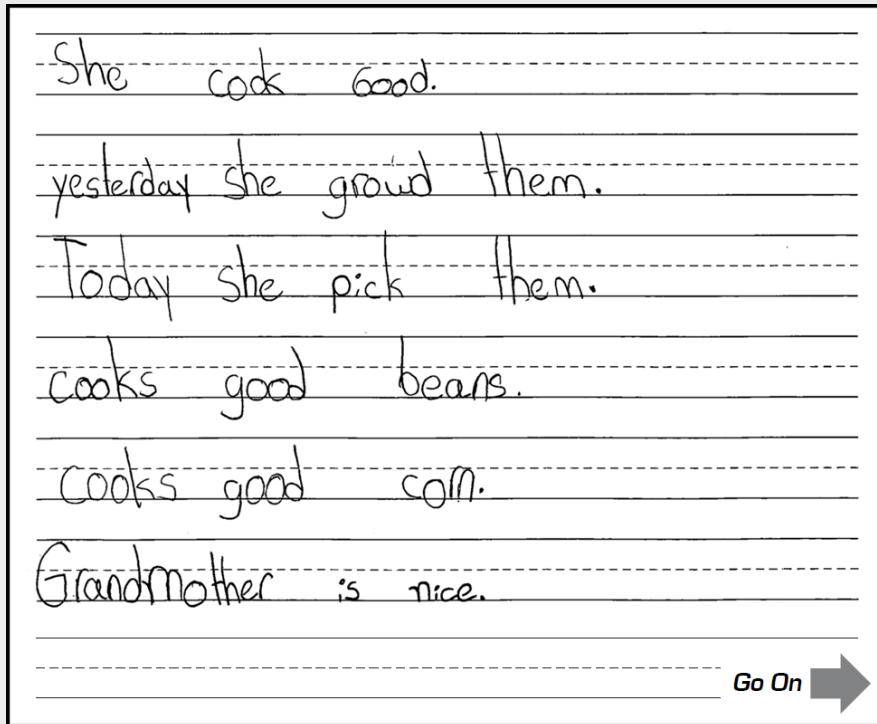 She cook Good.
yesterday she growd them.
Today she pick them.
cooks good beans.
cooks good corn.
Grandmother is nice.
Go On